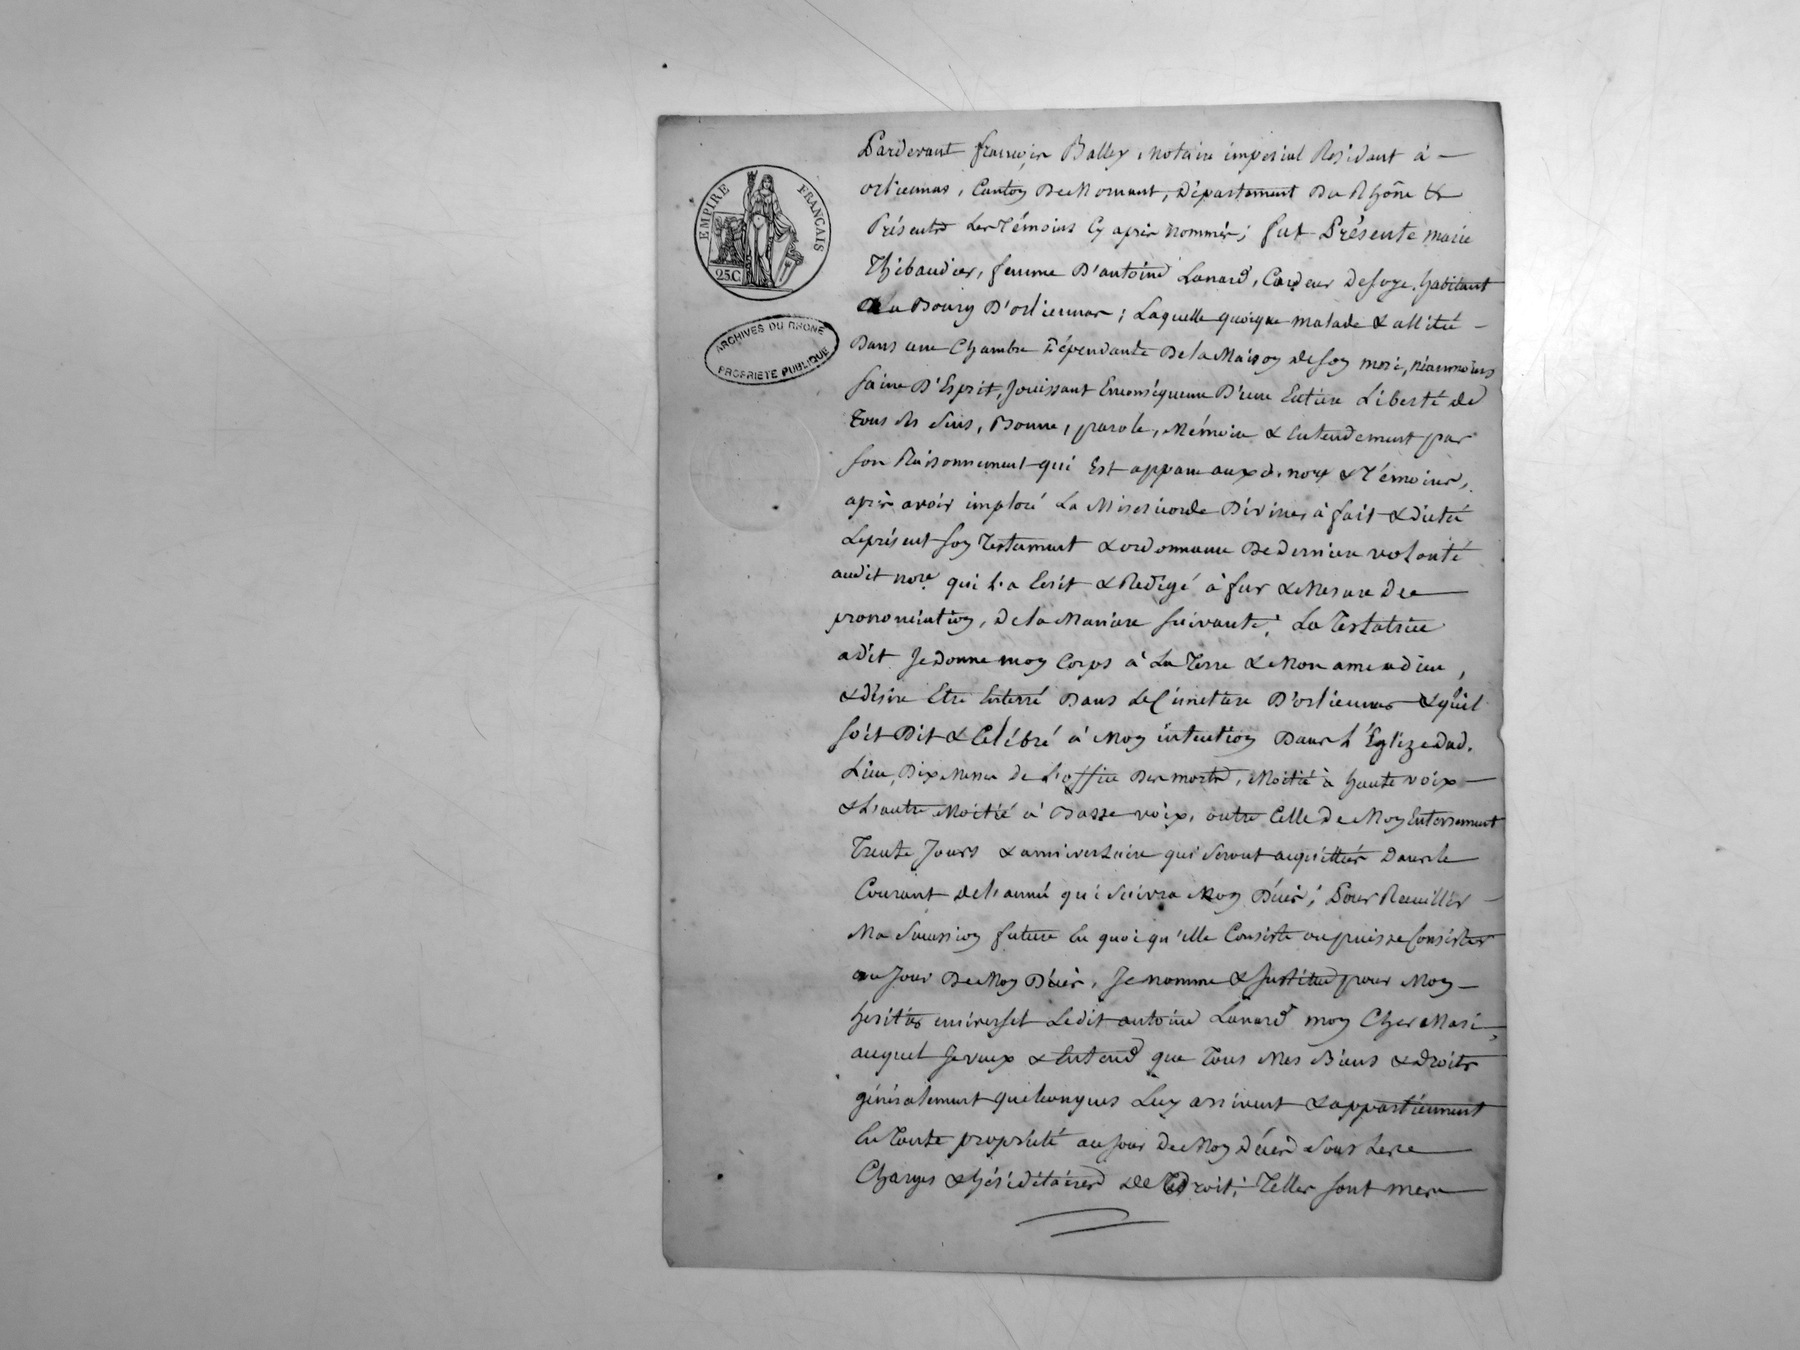 EMPIRE FRANCAIS
25C
ARCHIVES DU RHONE
PROPRIETE PUBLIQUE
Pardevant françois Balley Notaire imperial Residant à
orliennas, Canton De Mornant, Département Du Rhône &
Présents Les Témoins Cy après nommés; fut Présente marie
Thibaudier, femme D'antoine Lanard, Cardeur de soye, habitant
Au Bourg D'orlienas; Laquelle quoique malade & allitée
Dans une Chambre Dépendante De la Maison de son mari, néanmoins
saine D'Esprit, Jouissant Enconséquence D'une Entiere Liberté de
tous ses Sens, Bonne, parole, Mémoire & Entendement par
son Raisonnement qui Est apparu auxd. nore & Témoins,
après avoir imploré La Misericorde Divine, à fait & dicté
Leprésent son Testament & ordonnance De derniere volonté
audit nore qui L'a Ecrit & Redigé à fur & Mesure de
prononciation, De la Maniere suivante; La Testatrice
a dit Je donne mon Corps à La Terre & Mon ame a dieu,
& désire Etre Enterré Dans Le Cimetiere D'orlienas & qu'il
soit Dit & Célébré à Mon intention Dans L'Eglize dud.
Lieu, Dix Messes de L'office Des morts, Moitié à haute voix
& L'autre Moitié à Basse voix, outre Celle De Mon Enterrement
Trente Jours & anniversaire qui Seront acquittés Dans le
Courant de L'année qui Suivra Mon Décès; Pour Recuillir
Ma Succession future En quoi qu'elle Consiste ou puisse Consister
au Jour De Mon Décès, Je nomme & Jnstitue pour Mon
heritier universel Ledit antoine Lanard mon Cher Mari,
auquel Je veux & Entend que Tous Mes Biens & droits
généralement quelconques Luy arrivent & appartiennent
En Toute propriété au Jour De Mon Décès Sous Les
Charges & héréditaires De Droit; Telles sont mes